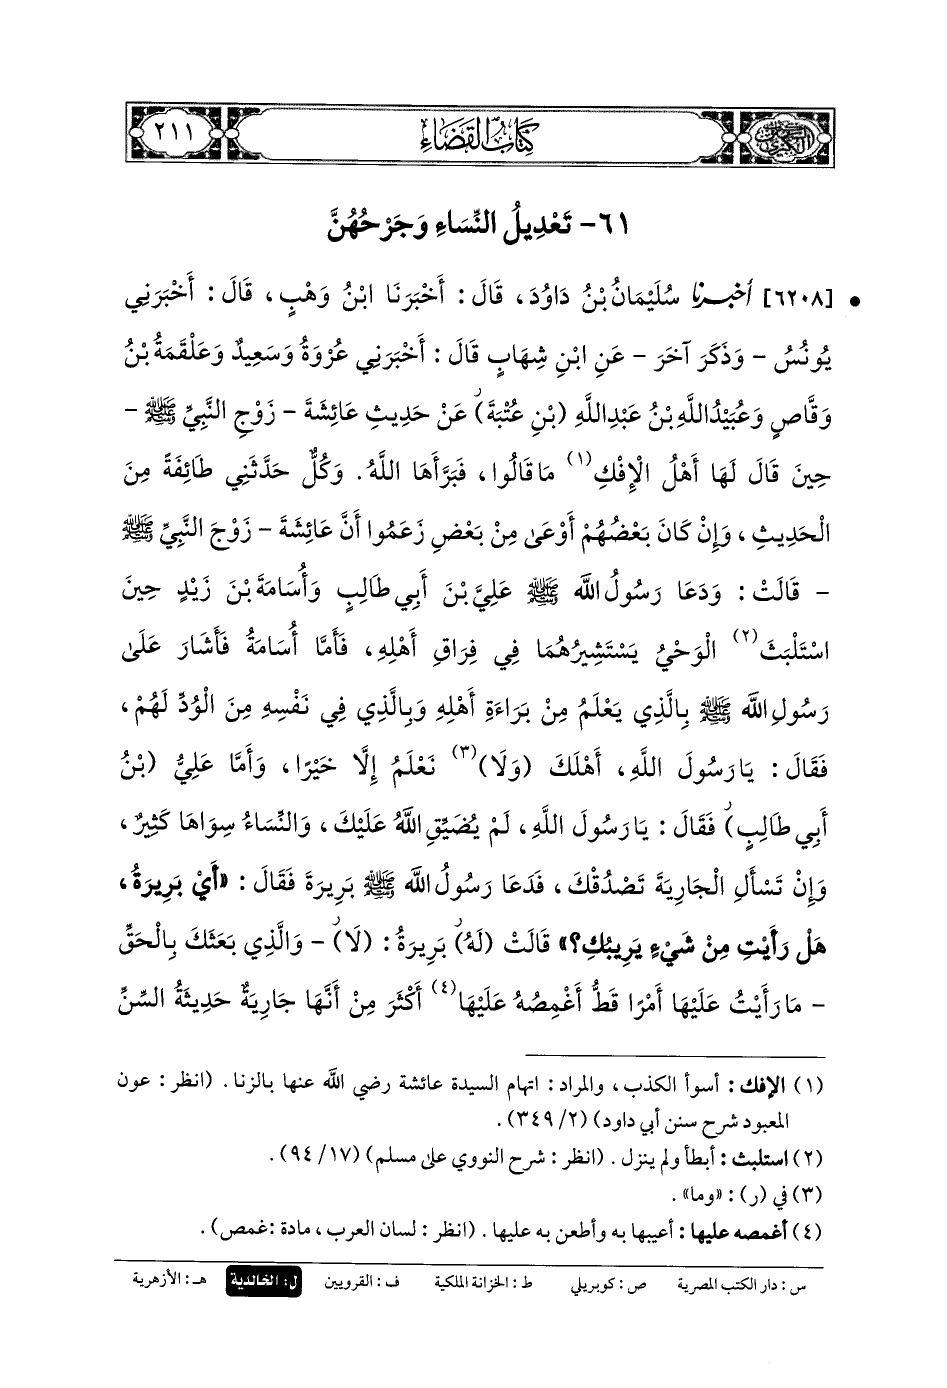 السنن الكبرى
كِتَابُ القَضَاءِ
٢١١
٦١- تَعْدِيلُ النِّسَاءِ وَجَرْحُهُنَّ
• [٦٢٠٨] أخبرنا سُلَيْمَانُ بْنُ دَاوُدَ، قَالَ: أَخْبَرَنَا ابْنُ وَهْبٍ، قَالَ: أَخْبَرَنِي
يُونُسُ - وَذَكَرَ آخَرَ - عَنِ ابْنِ شِهَابٍ قَالَ: أَخْبَرَنِي عُرْوَةُ وَسَعِيدٌ وَعَلْقَمَةُ بْنُ
وَقَّاصٍ وَعُبَيْدُاللَّهِ بْنُ عَبْدِاللَّهِ (بْنِ عُتْبَةَ)ر عَنْ حَدِيثِ عَائِشَةَ - زَوْجِ النَّبِيِّ ﷺ -
حِينَ قَالَ لَهَا أَهْلُ الْإِفْكِ(١) مَا قَالُوا، فَبَرَّأَهَا اللَّهُ. وَكُلٌّ حَدَّثَنِي طَائِفَةً مِنَ
الْحَدِيثِ، وَإِنْ كَانَ بَعْضُهُمْ أَوْعَى مِنْ بَعْضٍ زَعَمُوا أَنَّ عَائِشَةَ - زَوْجَ النَّبِيِّ ﷺ
- قَالَتْ: وَدَعَا رَسُولُ اللَّه ﷺ عَلِيَّ بْنَ أَبِي طَالِبٍ وَأُسَامَةَ بْنَ زَيْدٍ حِينَ
اسْتَلْبَثَ(٢) الْوَحْيُ يَسْتَشِيرُهُمَا فِي فِرَاقِ أَهْلِهِ، فَأَمَّا أُسَامَةُ فَأَشَارَ عَلَى
رَسُولِ اللَّه ﷺ بِالَّذِي يَعْلَمُ مِنْ بَرَاءَةِ أَهْلِهِ وَبِالَّذِي فِي نَفْسِهِ مِنَ الْوُدِّ لَهُمْ،
فَقَالَ: يَا رَسُولَ اللَّهِ، أَهْلَكَ (وَلَا)(٣) نَعْلَمُ إِلَّا خَيْرًا، وَأَمَّا عَلِيُّ (بْنُ
أَبِي طَالِبٍ)ر فَقَالَ: يَا رَسُولَ اللَّهِ، لَمْ يُضَيِّقِ اللَّهُ عَلَيْكَ، وَالنِّسَاءُ سِوَاهَا كَثِيرٌ،
وَإِنْ تَسْأَلِ الْجَارِيَةَ تَصْدُقْكَ، فَدَعَا رَسُولُ اللَّه ﷺ بَرِيرَةَ فَقَالَ: «أَيْ بَرِيرَةُ،
هَلْ رَأَيْتِ مِنْ شَيْءٍ يَرِيبُكِ؟» قَالَتْ (لَهُ)ر بَرِيرَةُ: (لَا)ر - وَالَّذِي بَعَثَكَ بِالْحَقِّ
- مَا رَأَيْتُ عَلَيْهَا أَمْرًا قَطُّ أَغْمِصُهُ عَلَيْهَا(٤) أَكْثَرَ مِنْ أَنَّهَا جَارِيَةٌ حَدِيثَةُ السِّنِّ
(١) الإفك: أسوأ الكذب، والمراد: اتهام السيدة عائشة رضي الله عنها بالزنا. (انظر: عون
المعبود شرح سنن أبي داود) (٢/ ٣٤٩).
(٢) استلبث: أبطأ ولم ينزل. (انظر: شرح النووي على مسلم) (١٧/ ٩٤).
(٣) في (ر): «وما».
(٤) أغمصه عليها: أعيبها به وأطعن به عليها. (انظر: لسان العرب، مادة: غمص).
س: دار الكتب المصرية ص: كوبريلي ط: الخزانة الملكية ف: القرويين ل: الخالدية هـ: الأزهرية